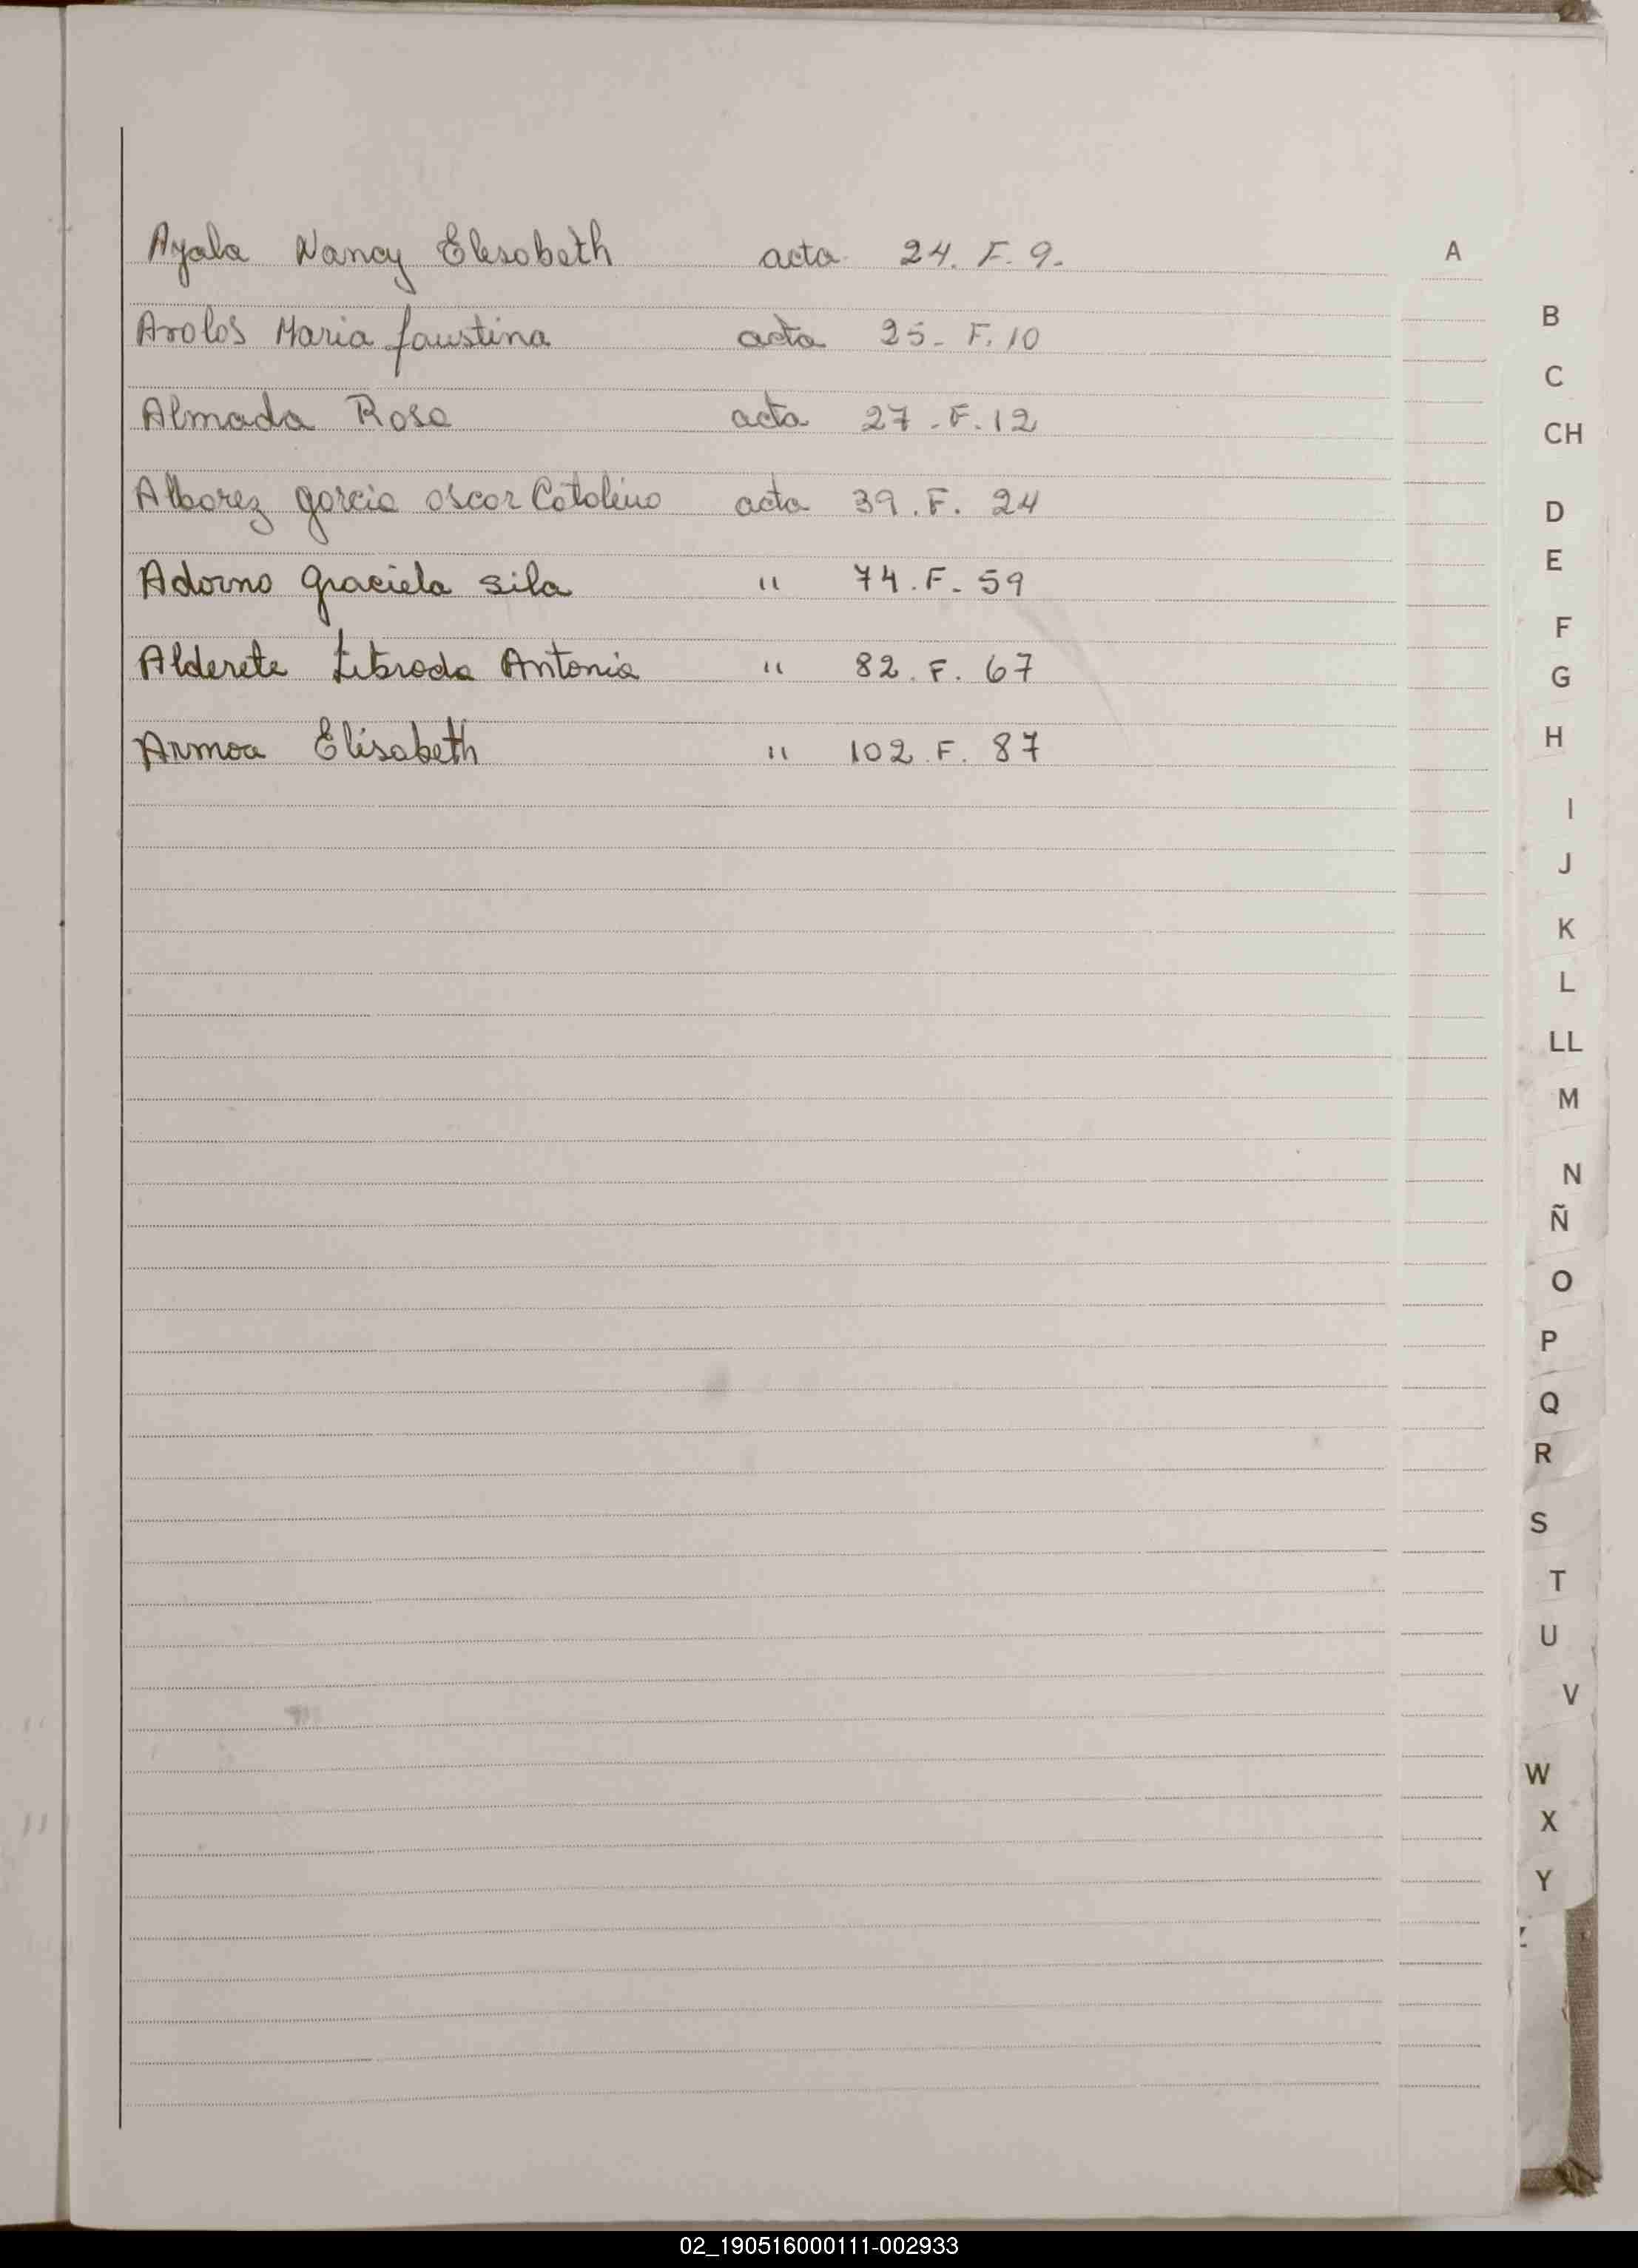 Ayala Nancy Elesabeth acta 24. F. 9.
A
Avalos Maria faustina acta 25- F. 10
B
C
Almada Rosa acta 27 - F. 12
CH
Alvarez garcia oscar Catalino acta 39. F. 24
D
E
Adorno graciela sila " 74. F. 59
F
Alderete Librada Antonia " 82. F. 67
G
Armoa Elisabeth " 102. F. 87
H
I
J
K
L
LL
M
N
Ñ
O
P
Q
R
S
T
U
V
W
X
Y
02_190516000111-002933